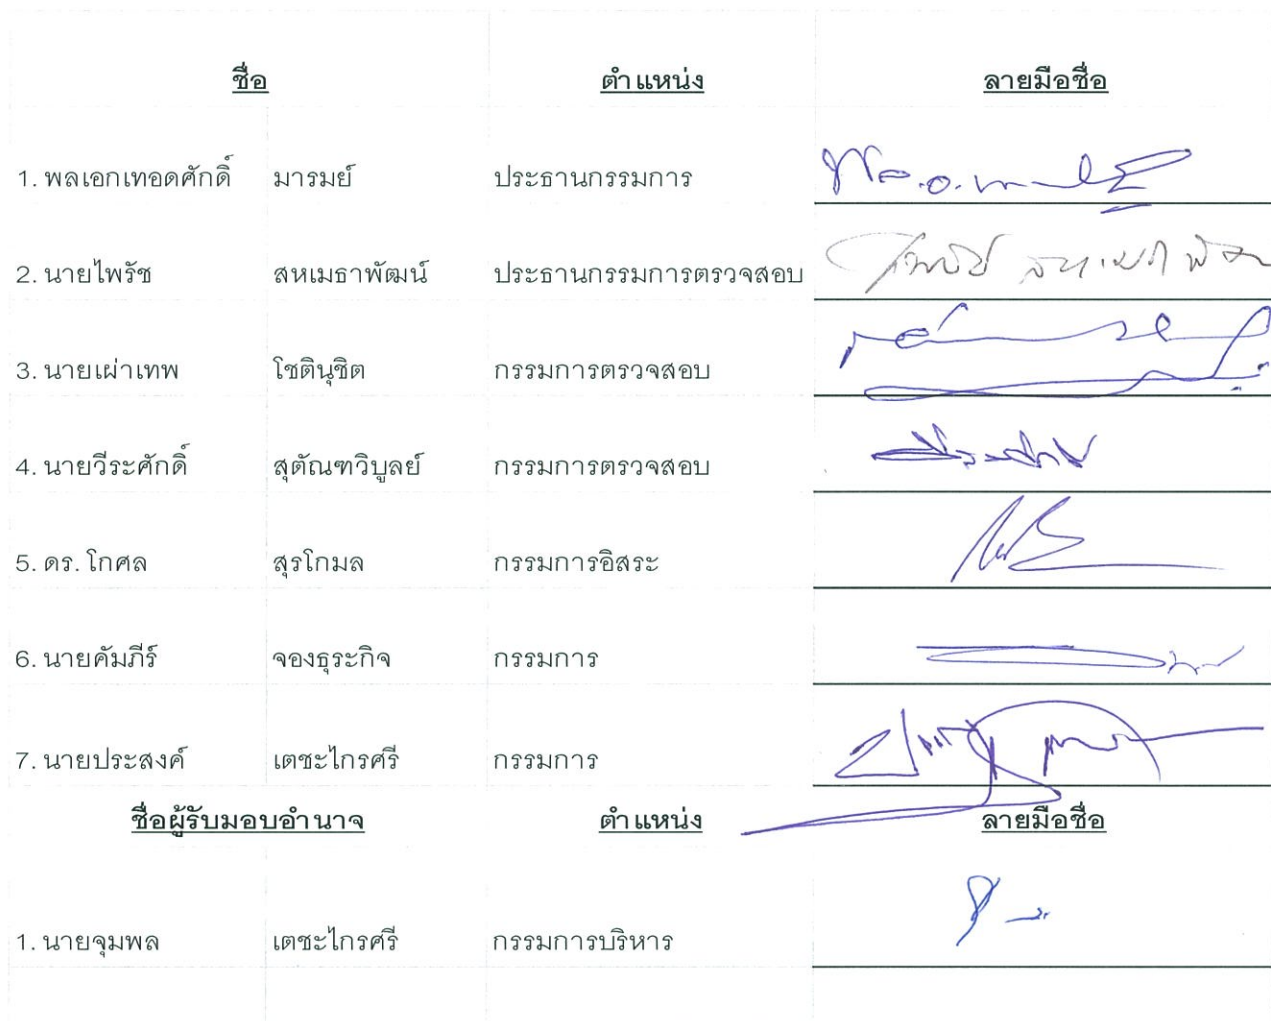 ชื่อ ตำแหน่ง ลายมือชื่อ
1. พลเอกเทอดศักดิ์ มารมย์ ประธานกรรมการ
2. นายไพรัช สหเมธาพัฒน์ ประธานกรรมการตรวจสอบ
3. นายเผ่าเทพ โชตินุชิต กรรมการตรวจสอบ
4. นายวีระศักดิ์ สุตัณฑวิบูลย์ กรรมการตรวจสอบ
5. ดร. โกศล สุรโกมล กรรมการอิสระ
6. นายคัมภีร์ จองธุระกิจ กรรมการ
7. นายประสงค์ เตชะไกรศรี กรรมการ
ชื่อผู้รับมอบอำนาจ ตำแหน่ง ลายมือชื่อ
1. นายจุมพล เตชะไกรศรี กรรมการบริหาร